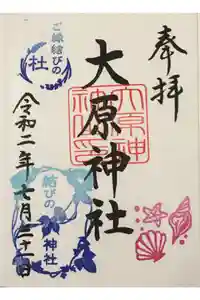 奉拝
大原神社
ご縁結びの
社
令和二年七月二十一日
結びの
神社